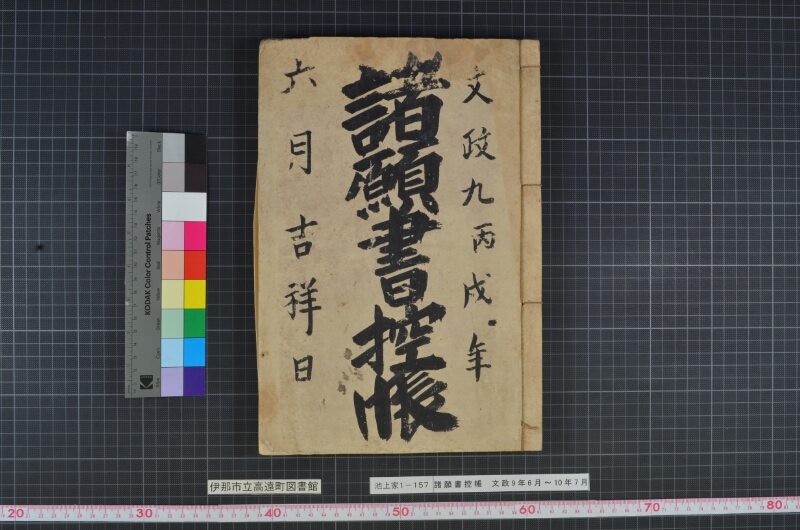 文政九丙戌年
諸願書控帳
六月吉祥日
KODAK Color Control Patches
伊那市立高遠町図書館
池上家1－157 諸願書控帳 文政9年6月～10年7月
20 30 40 50 60 70 80